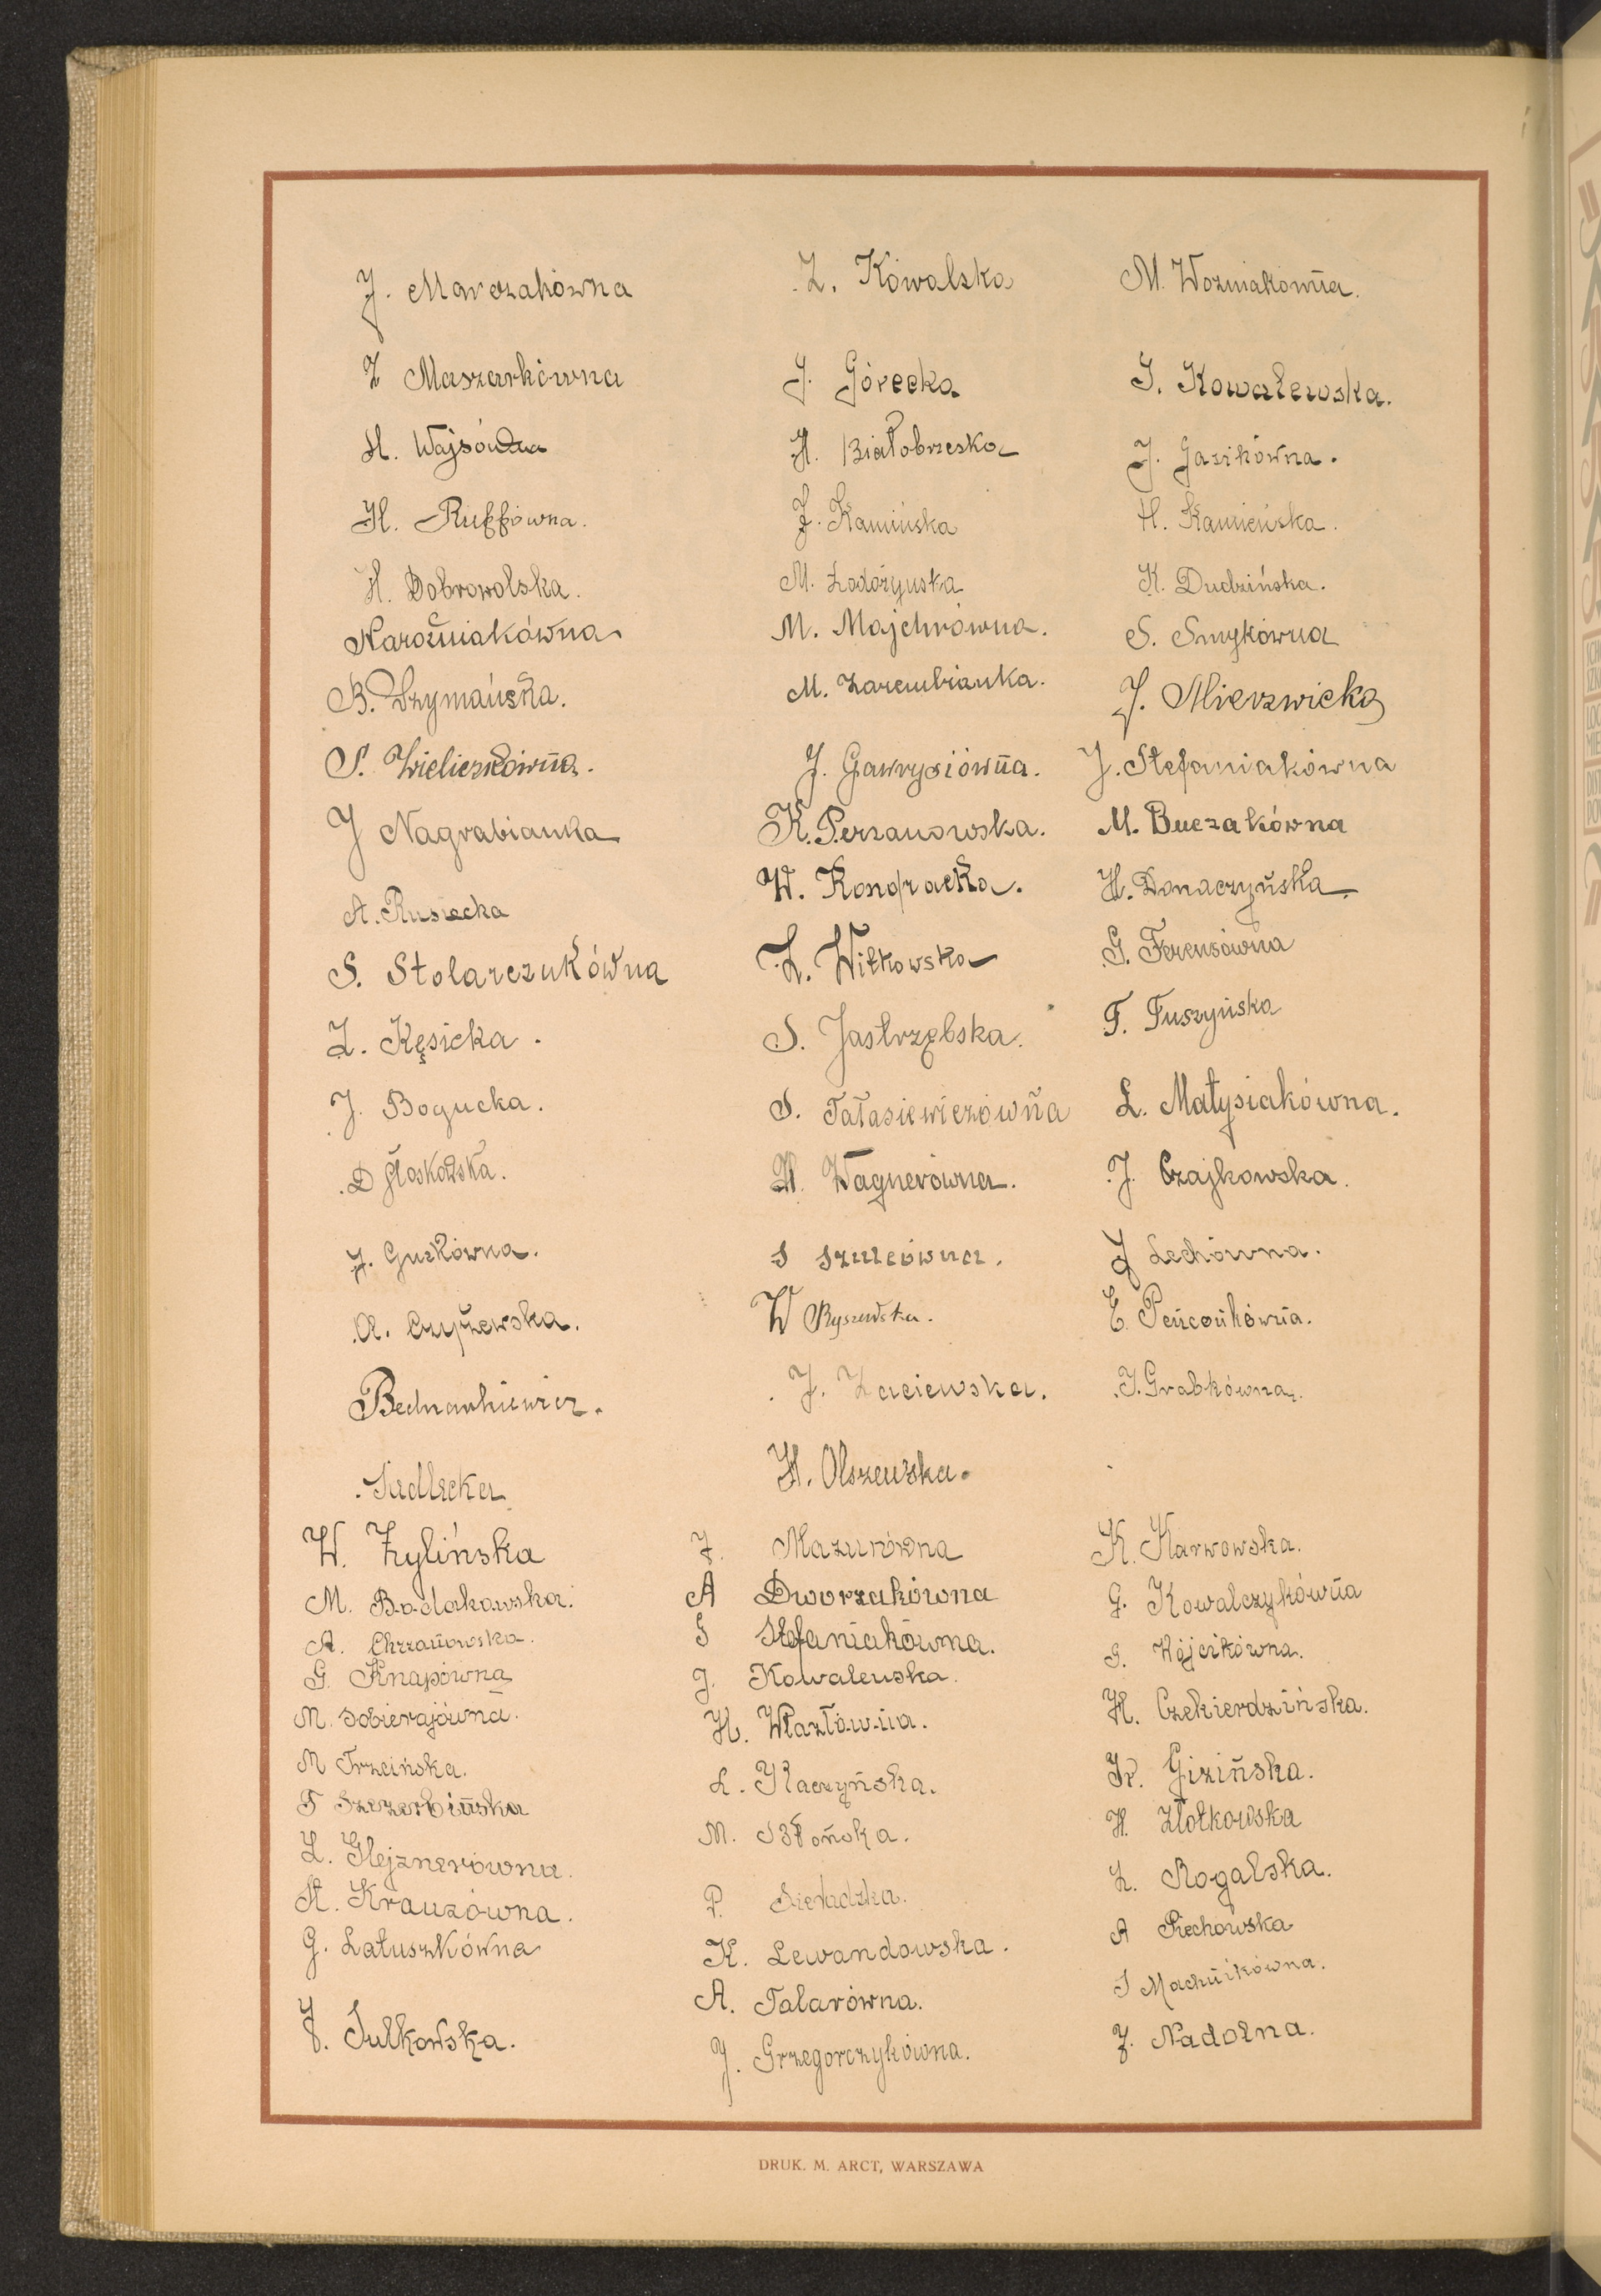 J. Marczakówna
Z Maszarkówna
H. Wajsówna
H. Ruffówna.
H. Dobrowolska.
Narożniakówna
B. Szymańska.
S. Wieliczkówna.
J Nagrabianka
A. Rusiecka
S. Stolarczukówna
Z. Kęsicka.
J. Bogucka.
D Głoskowska.
J. Guzkówna.
A. Czyżewska.
Bednarkiewicz.
Sadlecka
W. Żylińska
M. Badakowska.
A. Chrzanowska.
G. Knapówna
M. Sobierajówna.
M Trzcińska.
F Szczerbińska
L. Glejznerówna.
A. Krauzówna.
G. Latuszkówna
J. Sulkowska.
Z. Kowalska
J. Górecka
H. Białobrzeska
J. Kamińska
M.
M. Majchrówna.
M. Zarembianka.
J. Gawrysiówna.
K. Perzanowska.
W. Konopacka.
Z. Witkowska
S. Jastrzębska.
S. Tałasiewiczówna
H. Wagnerówna.
S Szulcówna.
W Ryszewska.
J. Zaciewska.
H. Olszewska.
J. Mazurówna
A Dworzakówna
S Stefaniakówna.
J. Kowalewska.
H. Wlazłówna.
L. Kaczyńska.
M. Słońska.
P. Sieradzka.
K. Lewandowska.
A. Talarówna.
J. Grzegorczykówna.
M. Woźniakówna.
I. Kowalewska.
J. Gasikówna.
H. Kamieńska.
K. Dudzińska.
S. Smykówna
J. Mierzwicka
J. Stefaniakówna
M. Buczakówna
H. Donaczyńska
G. Ferensówna
F. Fuszyńska
L. Małysiakówna.
J. Czajkowska.
J Lechówna.
E. Pończonkówna.
J. Grabkówna.
K. Karwowska.
G. Kowalczykówna
S. Wójcikówna.
H. Czekierdzińska.
Ir. Gizińska.
H. Złotkowska
Z. Rogalska.
A Piechowska
S Machnikówna.
Z. Nadolna.
DRUK. M. ARCT, WARSZAWA